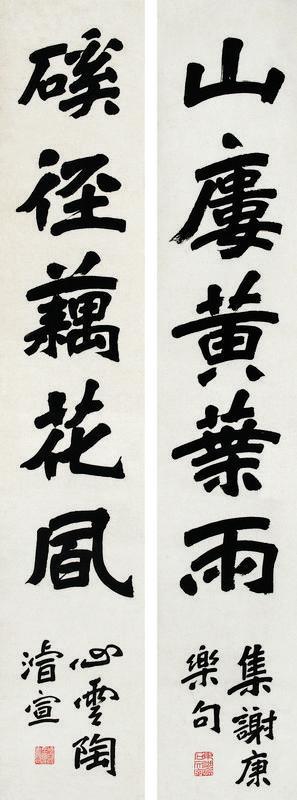 山廔黃葉雨
集謝康
樂句
磎徑藕花風
心雲陶
濬宣